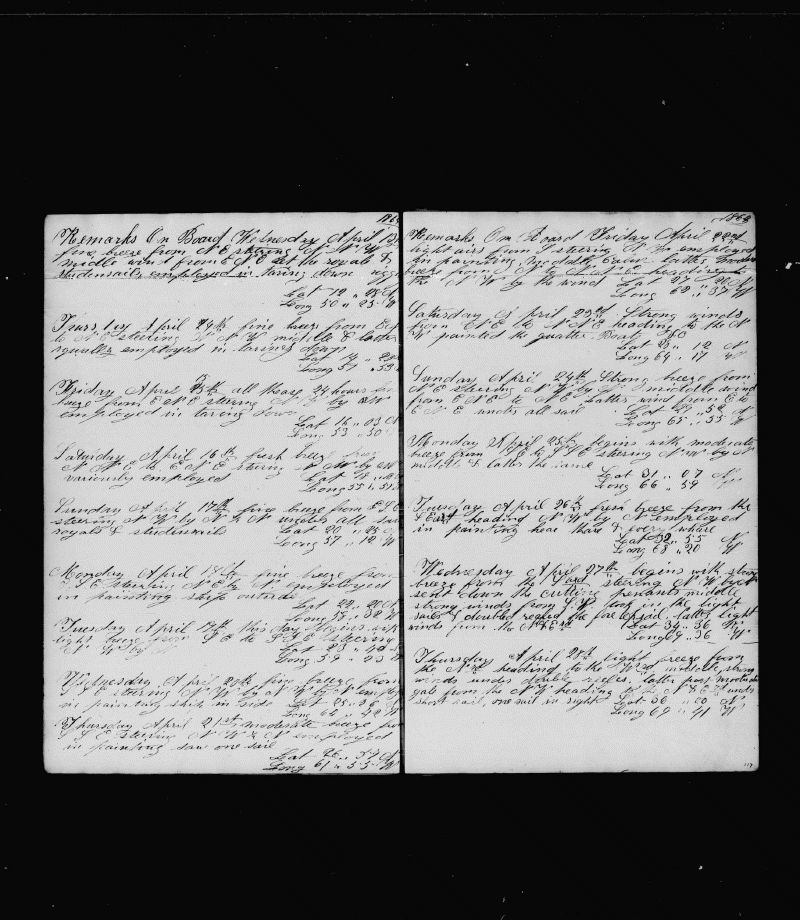 186
Remarks On Board Wednesday April 13
fine breeze from N E steering N N W
middle wind from E N E set the royals &
studensails employed in taring down
Lat 12 " 28 N
Long 50 " 25 W
Thursday April 14th fine breeze from
to N E steering N W middle & latter
squally employed in taring down
Lat 14 "
Long 51 "
Friday April 15th all these 24 hours
breeze from E N E steering N W by
employed in taring down
Lat 16 " 03 N
Long 53 " 30
Saturday April 16th fresh breeze from
N N E to E N E steering N W by
variously employed
Lat 18
Long 55 "
Sunday April 17th fine breeze from
steering N W by N & N under all sail
royals & studensails
Lat 20 " 25 N
Long 57 " 12 W
Monday April 18th fine breeze from
E S E steering N employed
in painting ship outside
Lat 22 " 20 N
Long
Tuesday April 19th this day begins with
light breeze from S E to S S E steering
N W by
Lat 23 "
Long 59 " 23 W
Wednesday April 20th fine breeze from
S S E steering N W by N employ
in painting ship in side Lat 25 " 26
Long
Thursday April 21st moderate breeze from
S S E steering N W & N employed
in painting saw one sail
Lat 26 " 54 N
Long 61 " 55 W
1864
Remarks On Board Friday April 22nd
light airs from S steering N W employed
in painting middle calm latter moderate
breeze from heading to
the N W by the wind Lat 27 " 20 N
Long 62 " 37 W
Saturday April 23th Strong winds
from N E to N N E heading to the N
W painted the quarter Boat
Lat 28 " 12 N
Long 64 " 17 W
Sunday April 24th Strong breeze from
N E steering N W by N middle wind
from E N E to N E latter wind from E to
E N E under all sail Lat 29 " 52 N
Long 65 " 35 W
Monday April 25th begins with moderate
breeze from E to S S E steering N W by N
middle & latter the same
Lat 31 " 07 N
Long 66 " 59 W
Tuesday April 26th fresh breeze from the
S E heading N W by N employed
in painting hear thare & every where
Lat 32 " 55 N
Long 68 " 20 W
Wednesday April 27th begins with strong
breeze from the S ard steering N W by N
sent down the cutting penants middle
strong winds from S W took in the light
sails & doubled reefed the fore topsail latter light
winds from the N & E Lat 34 " 36 N
Long 69 " 36 W
Thursday April 28th light breeze from
the N E heading to the N W rd middle strong
winds under double reefes latter part moderate
gale from the N W heading to the N & E rd under
short sail, one sail in sight Lat 36 " 00 N
Long 69 " 41 W
117